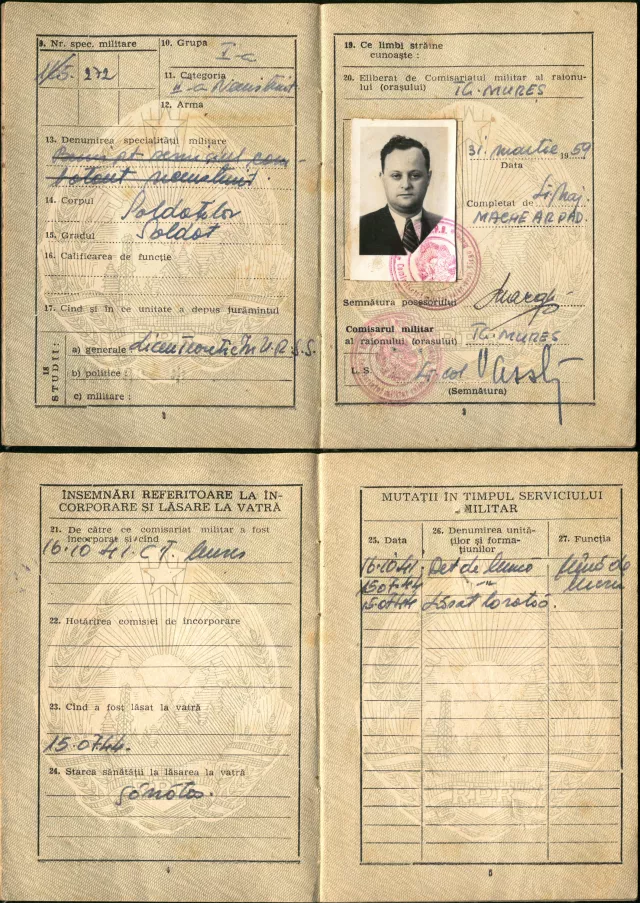 9. Nr. spec. militare
272
10. Grupa I-a
11. Categoria
II-a
12. Arma
13. Denumirea specialității militare
14. Corpul Soldaților
15. Gradul Soldat
16. Calificarea de funcție
17. Cînd și în ce unitate a depus jurămîntul
18 STUDII:
a) generale
b) politice :
c) militare :
19. Ce limbi străine
cunoaște :
20. Eliberat de Comisariatul militar al raionu-
lui (orașului) TG. MUREȘ
31. martie 1959
Data
Completat de
MACHE ARPAD.
Semnătura posesorului
Comisarul militar
al raionului (orașului) TG. MUREȘ
L. S. Lt col
(Semnătura)
3
ÎNSEMNĂRI REFERITOARE LA ÎN-
CORPORARE ȘI LĂSARE LA VATRĂ
21. De către ce comisariat militar a fost
încorporat și cînd
16.10.41. C.T. Mureș
22. Hotărîrea comisiei de încorporare
23. Cînd a fost lăsat la vatră
15.07.44.
24. Starea sănătății la lăsarea la vatră
sănătos.
4
MUTAȚII ÎN TIMPUL SERVICIULUI
MILITAR
25. Data
26. Denumirea unită-
ților și forma-
țiunilor
27. Funcția
16.10.41. Det de muncă
15.07.44 -"-
15.07.44 Lăsat la vatră.
5